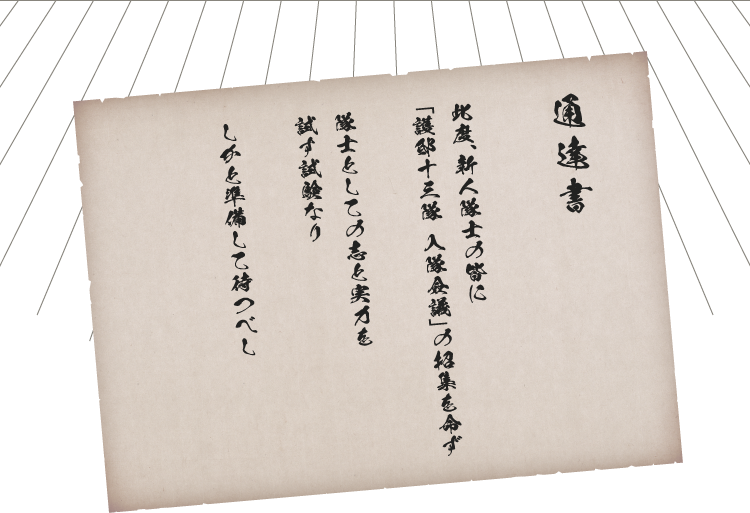 通達書
此度、新人隊士の皆に
「護邸十三隊 入隊会議」の招集を命ず
隊士としての志と実力を
試す試験なり
しかと準備して待つべし